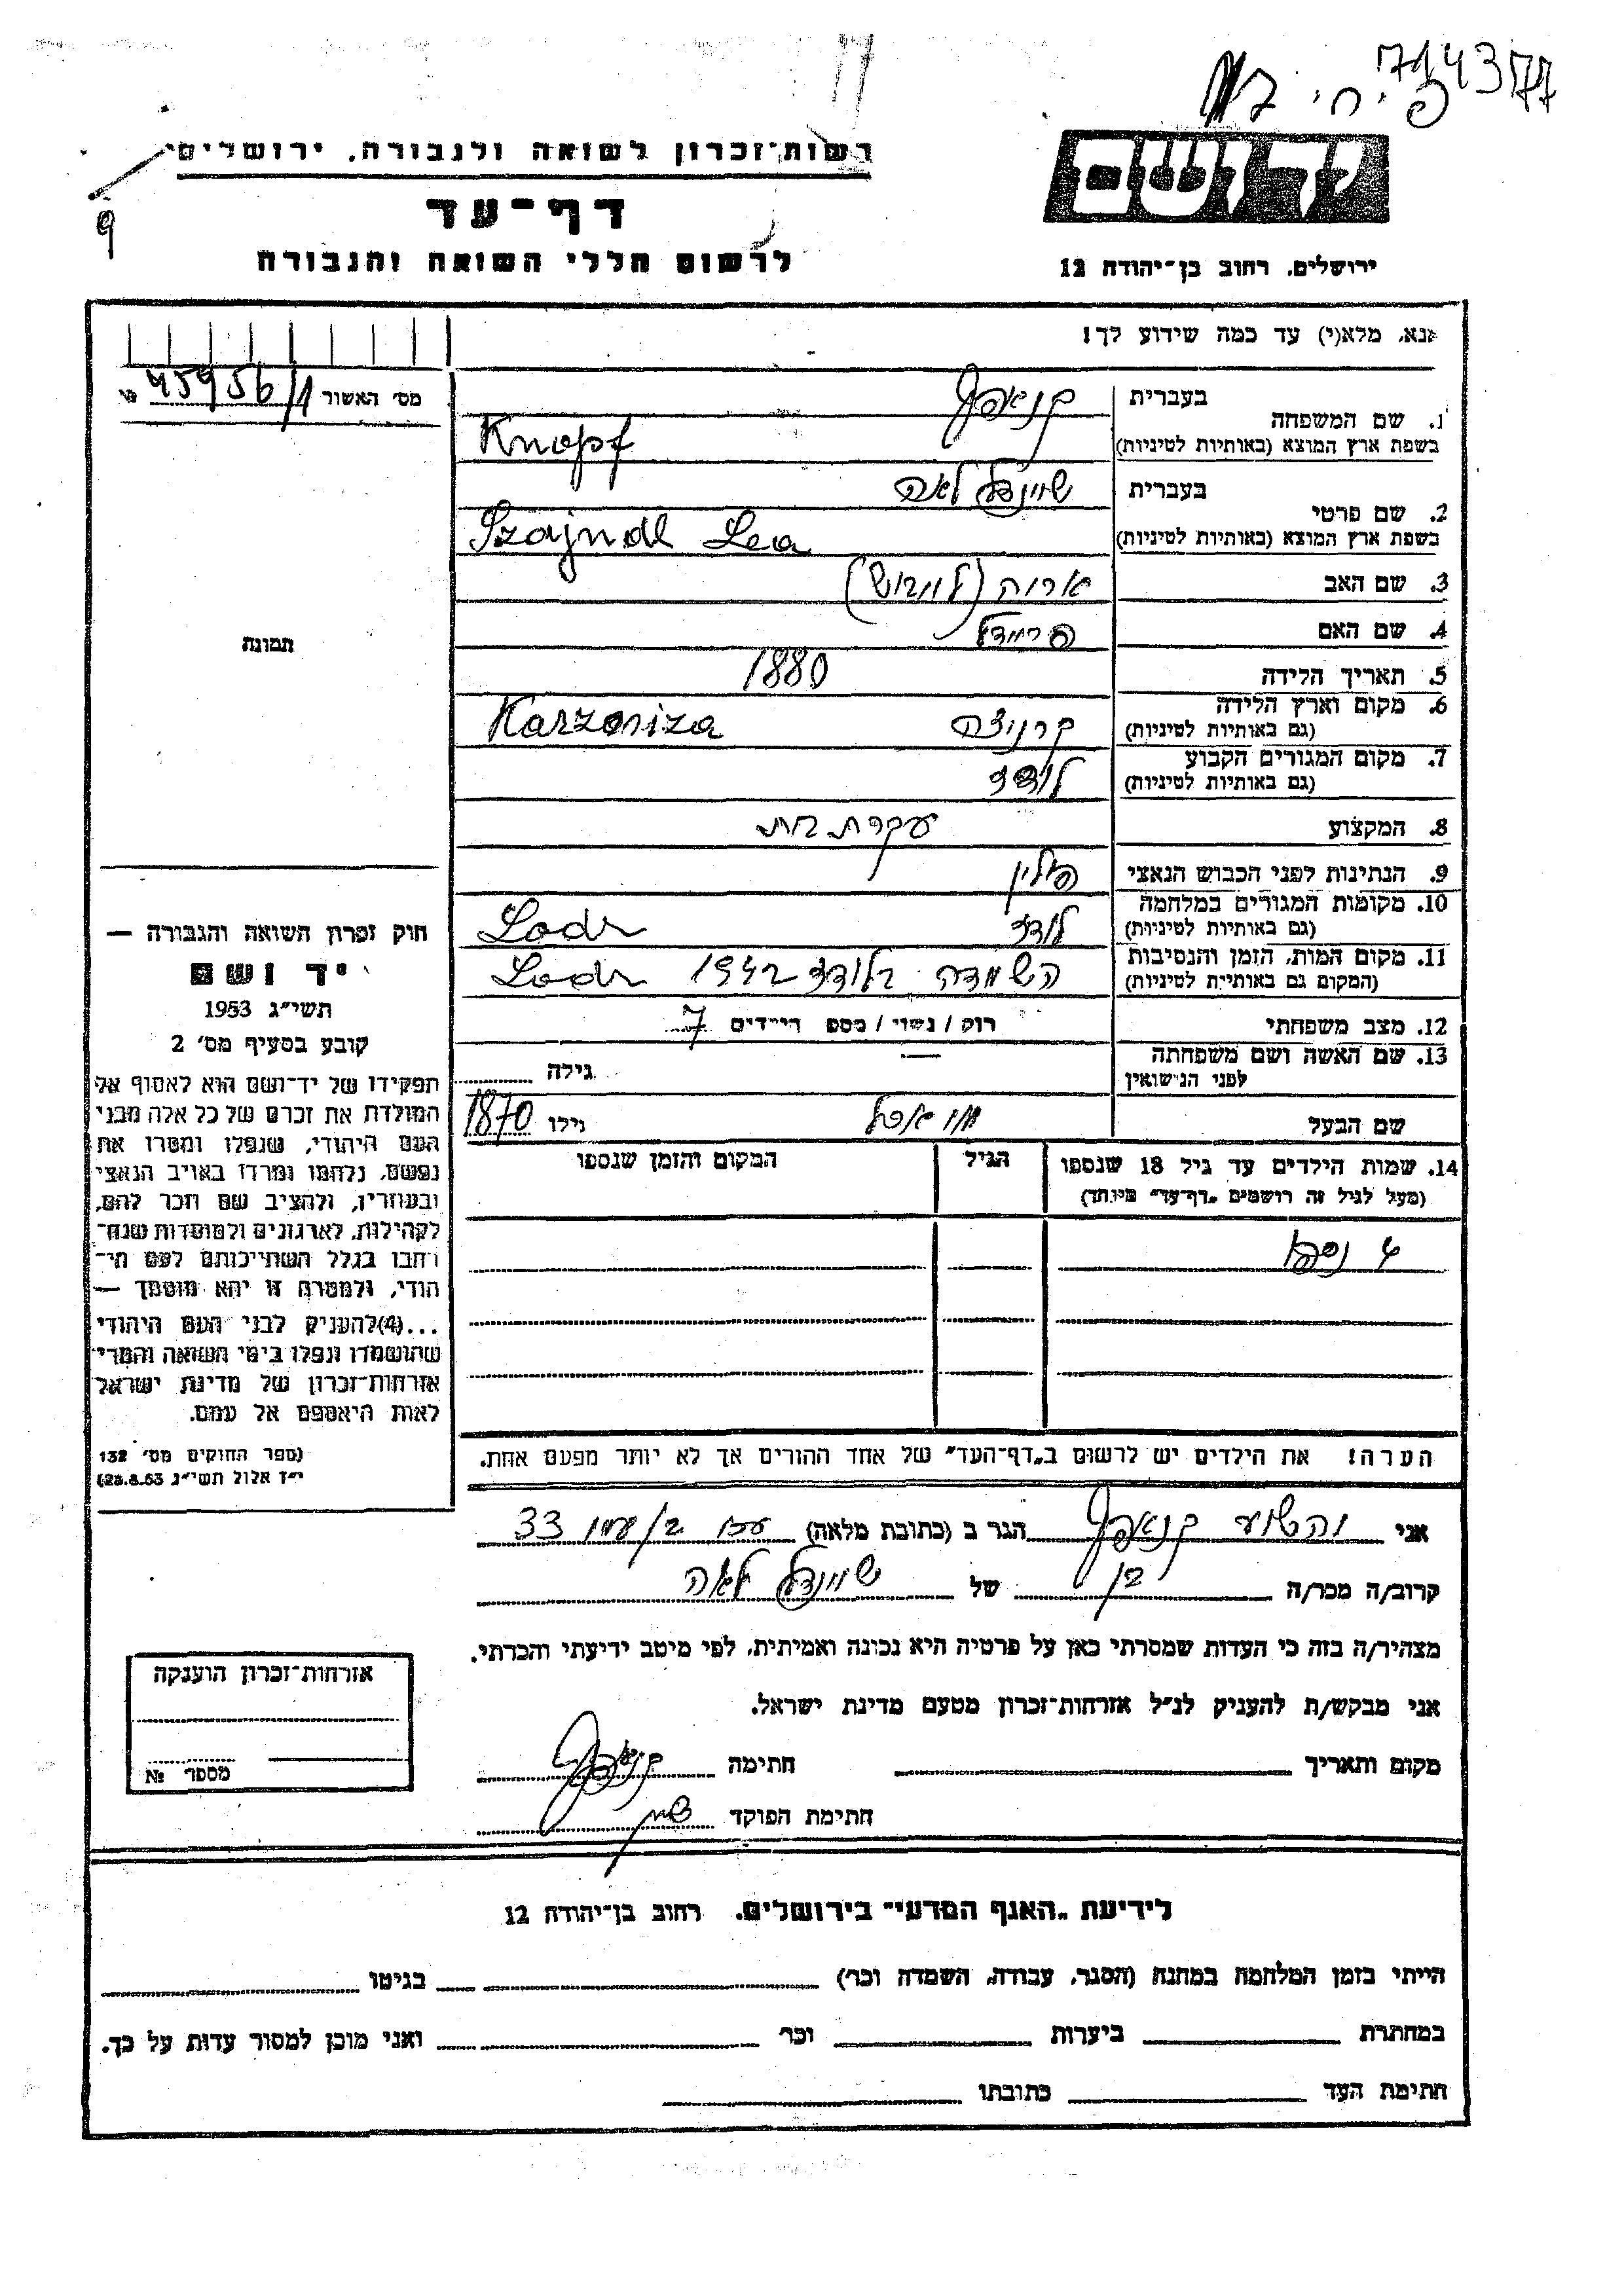 714377
רשות־זכרון לשואה ולגבורה, ירושלים
יד ושם
דף־עד
לרשום חללי השואה והגבורה
ירושלים, רחוב בן־יהודה 12
9
אנא, מלא(י) עד כמה שידוע לך!
מס׳ האשור 45956/1 №
תמונה
1. שם המשפחה
בעברית קנאפף
בשפת ארץ המוצא (באותיות לטיניות) Knopf
2. שם פרטי
בעברית שיינדל לאה
בשפת ארץ המוצא (באותיות לטיניות) Szajndl Lea
3. שם האב אריה (לייבוש)
4. שם האם פריידל
5. תאריך הלידה 1880
6. מקום וארץ הלידה
(גם באותיות לטיניות) קרניצה Karzoniza
7. מקום המגורים הקבוע
(גם באותיות לטיניות) לודז
8. המקצוע עקרת בית
9. הנתינות לפני הכבוש הנאצי פולין
10. מקומות המגורים במלחמה
(גם באותיות לטיניות) לודז Lodz
11. מקום המות, הזמן והנסיבות
(המקום גם באותיות לטיניות) השמדה בלודז 1942 Lodz
12. מצב משפחתי רוק / נשוי / מספר הילדים 7
13. שם האשה ושם משפחתה
לפני הנישואין — גילה
שם הבעל גילו 1870
14. שמות הילדים עד גיל 18 שנספו
(מעל לגיל זה רושמים „דף־עד״ מיוחד)
הגיל
המקום והזמן שנספו
4 נספו
הערה! את הילדים יש לרשום ב„דף־העד״ של אחד ההורים אך לא יותר מפעם אחת.
חוק זכרון השואה והגבורה —
יד ושם
תשי״ג 1953
קובע בסעיף מס׳ 2
תפקידו של יד־ושם הוא לאסוף אל
המולדת את זכרם של כל אלה מבני
העם היהודי, שנפלו ומסרו את
נפשם, נלחמו ומרדו באויב הנאצי
ובעוזריו, ולהציב שם וזכר להם,
לקהילות, לארגונים ולמוסדות שנח־
רבו בגלל השתייכותם לעם הי־
הודי, ולמטרה זו יהא מוסמך —
...(4) להעניק לבני העם היהודי
שהושמדו ונפלו בימי השואה והמרי
אזרחות־זכרון של מדינת ישראל
לאות היאספם אל עמם.
(ספר החוקים מס׳ 132
י״ז אלול תשי״ג 28.8.53)
אני יהושע קנאפף הגר ב (כתובת מלאה) עכו 33
קרוב/ה מכר/ה בן של שיינדל לאה
מצהיר/ה בזה כי העדות שמסרתי כאן על פרטיה היא נכונה ואמיתית, לפי מיטב ידיעתי והכרתי.
אני מבקש/ת להעניק לנ״ל אזרחות־זכרון מטעם מדינת ישראל.
מקום ותאריך חתימה קנאפף
חתימת הפוקד
אזרחות־זכרון הוענקה
מספר №
לידיעת „האגף המדעי״ בירושלים, רחוב בן־יהודה 12
הייתי בזמן המלחמה במחנה (הסגר, עבודה, השמדה וכו׳) בגיטו
במחתרת ביערות וכו׳ ואני מוכן למסור עדות על כך.
חתימת העד כתובתו